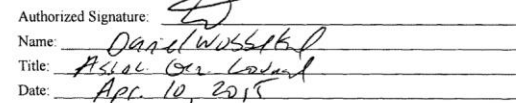 Authorized Signature:
Name: Daniel
Title: Assoc. Gen. Counsel
Date: Apr. 10, 2015